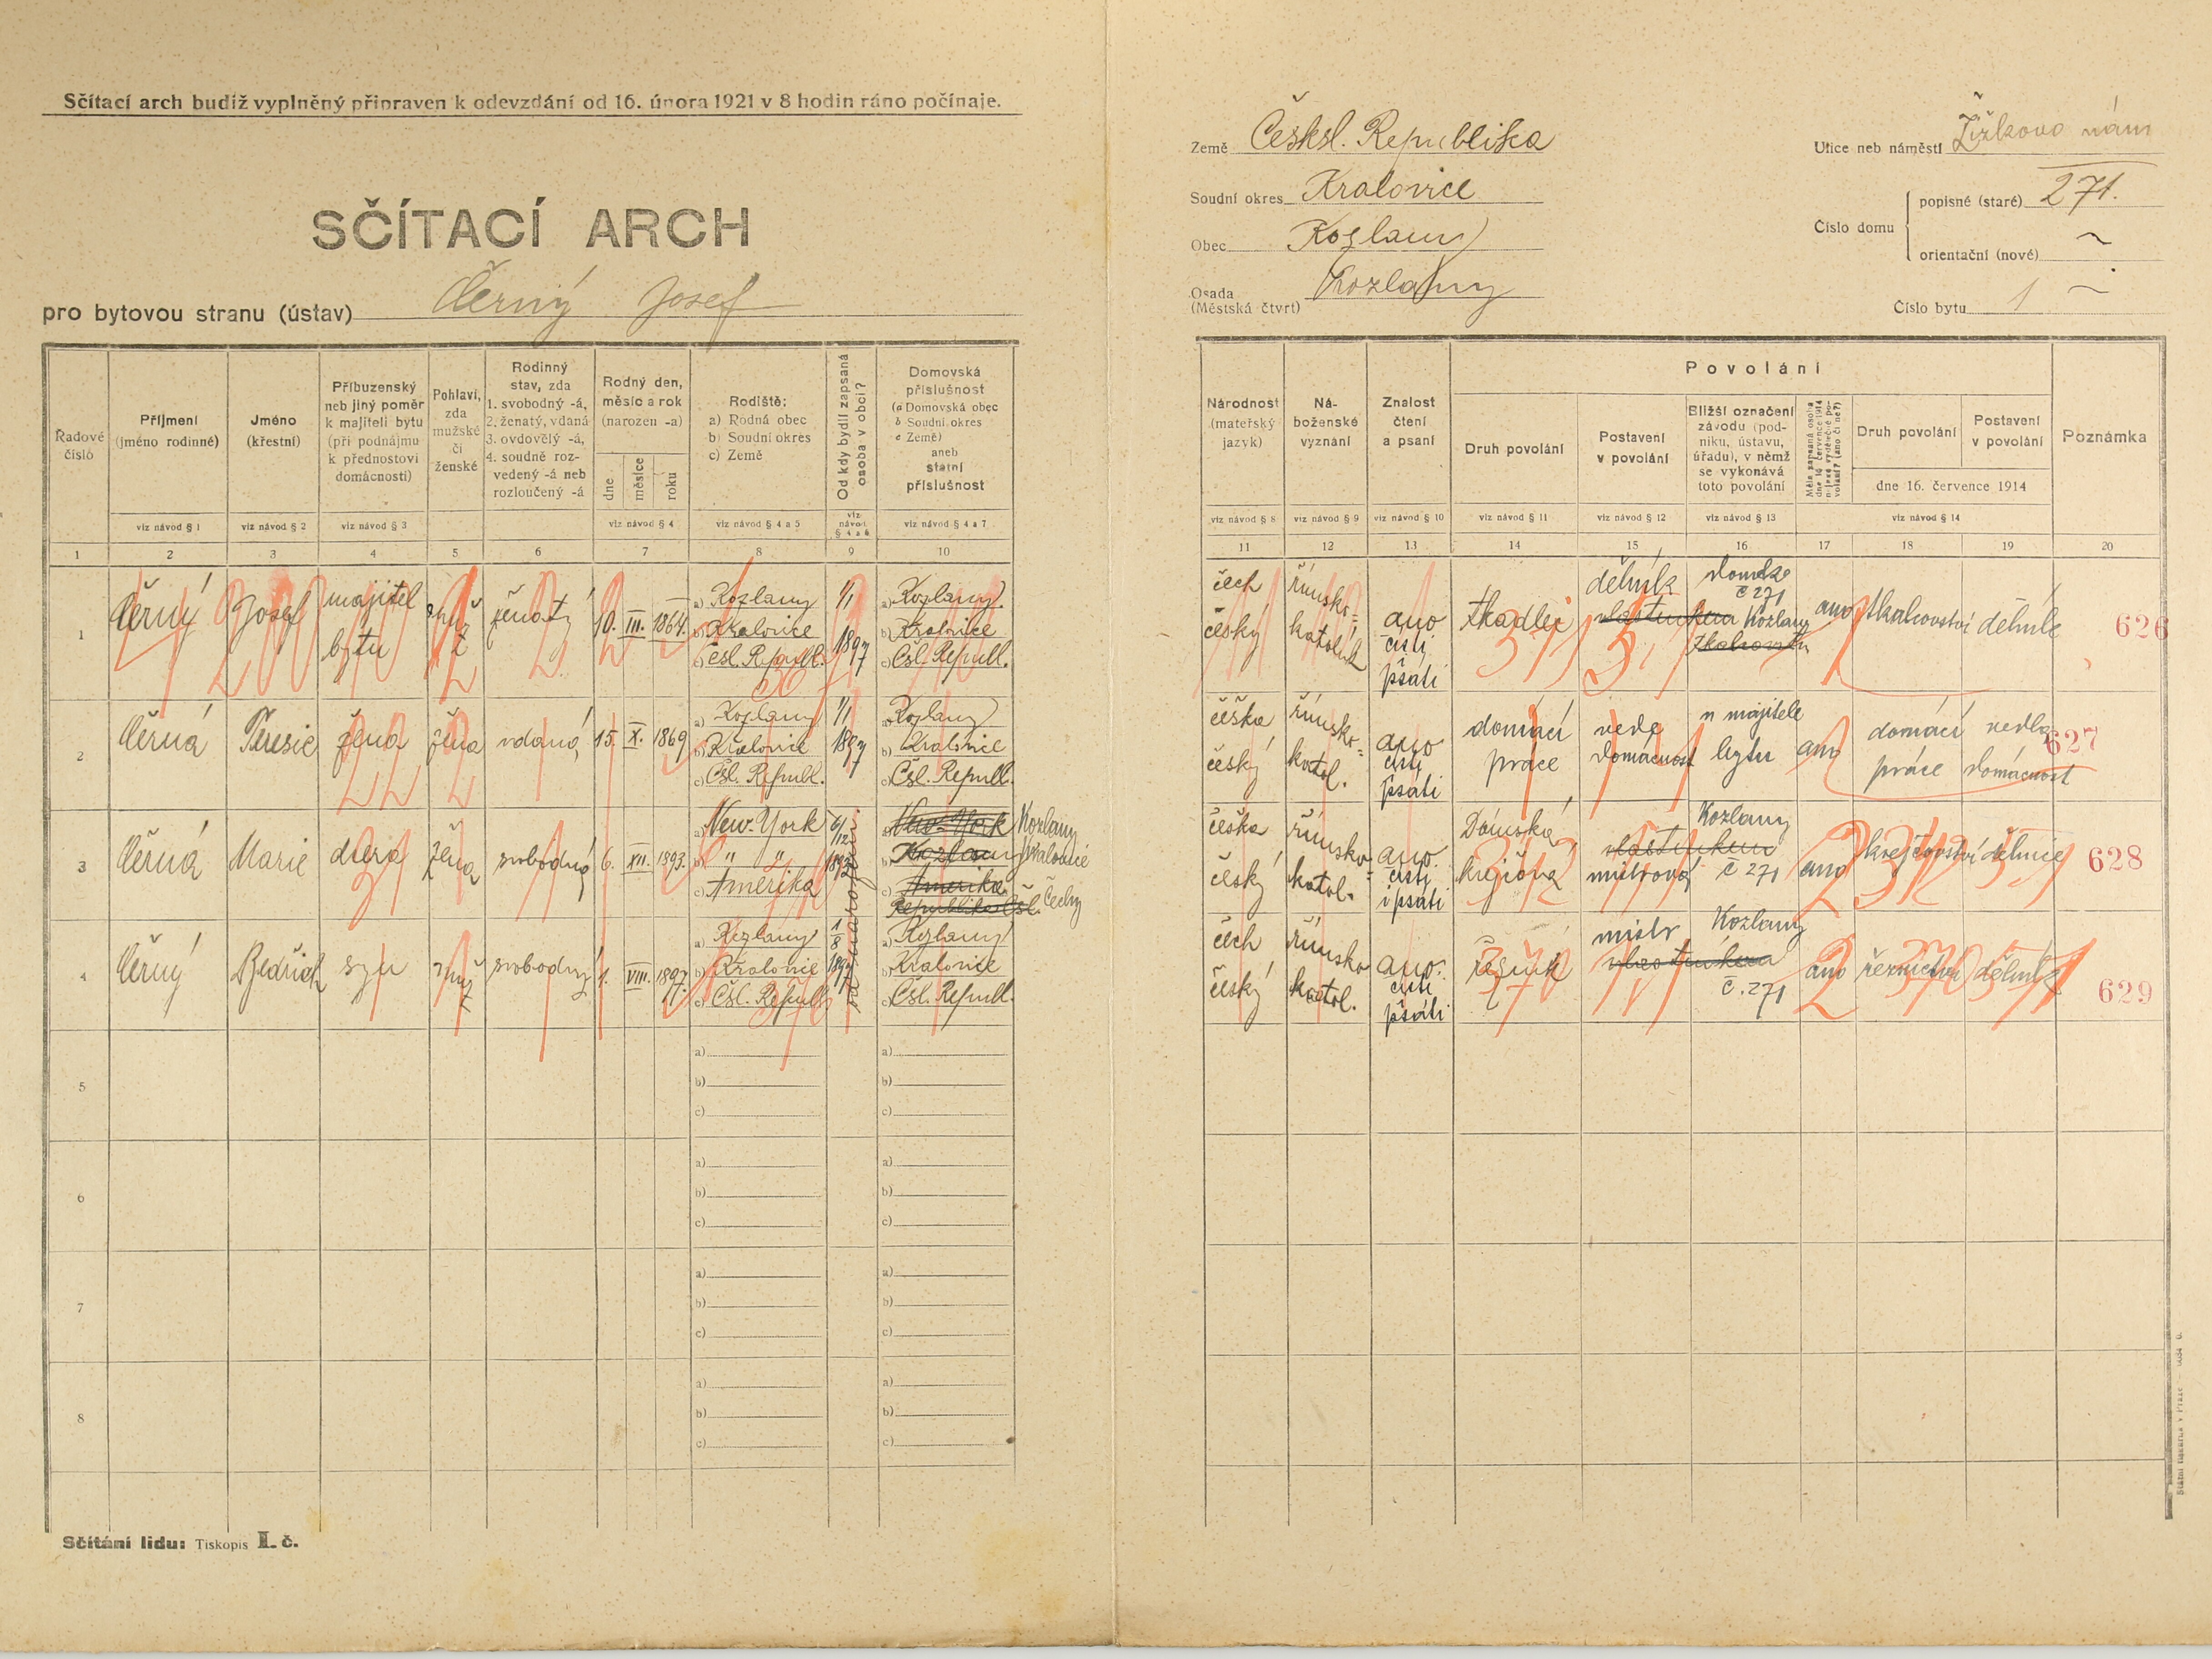 Sčítací arch budiž vyplněný připraven k odevzdání od 16. února 1921 v 8 hodin ráno počínaje.
SČÍTACÍ ARCH
pro bytovou stranu (ústav) Černý Josef
Země Česksl. Republika
Soudní okres Kralovice
Obec Kozlany
Osada Kozlany
(Městská čtvrť)
Ulice neb náměstí Žižkovo nám
Číslo domu
popisné (staré) 271.
orientační (nové) ~
Číslo bytu 1 ~
Řadové číslo
Příjmení (jméno rodinné)
Jméno (křestní)
Příbuzenský neb jiný poměr k majiteli bytu (při podnájmu k přednostovi domácnosti)
Pohlaví, zda mužské či ženské
Rodinný stav, zda
1. svobodný -á,
2. ženatý, vdaná
3. ovdovělý -á,
4. soudně rozvedený -á neb rozloučený -á
Rodný den, měsíc a rok (narozen -a)
dne
měsíce
roku
Rodiště:
a) Rodná obec
b) Soudní okres
c) Země
Od kdy bydlí zapsaná osoba v obci?
Domovská příslušnost
(a Domovská obec
b Soudní okres
c Země)
aneb
státní příslušnost
viz návod § 1
viz návod § 2
viz návod § 3
viz návod § 4
viz návod § 4 a 5
viz návod § 4 a 6
viz návod § 4 a 7
1 2 3 4 5 6 7 8 9 10
Národnost (mateřský jazyk)
Náboženské vyznání
Znalost čtení a psaní
Povolání
Druh povolání
Postavení v povolání
Bližší označení závodu (podniku, ústavu, úřadu), v němž se vykonává toto povolání
Měla zapsaná osoba dne 16. července 1914 nějaké výdělečné povolání? (ano či ne?)
Druh povolání
Postavení v povolání
dne 16. července 1914
Poznámka
viz návod § 8
viz návod § 9
viz návod § 10
viz návod § 11
viz návod § 12
viz návod § 13
viz návod § 14
11 12 13 14 15 16 17 18 19 20
1 Černý Josef majitel bytu muž ženatý 10. III. 1864.
a) Kozlany
b) Kralovice
c) Čsl. Republ.
1/1 1897
a) Kozlany
b) Kralovice
c) Čsl. Republ.
čech český římsko-katolík ano čísti psáti tkadlec dělník domek č 271 Kozlany ano tkalcovství dělník 626
2 Černá Teresie žena žena vdaná 15. X. 1869
a) Kozlany
b) Kralovice
c) Čsl. Republ.
1/1 1897
a) Kozlany
b) Kralovice
c) Čsl. Republ.
češka český římsko-katol. ano čísti psáti domácí práce vede domácnost u majitele bytu ano domácí práce vedla domácnost 627
3 Černá Marie dcera žena svobodná 6. XII. 1893.
a) New-York
b) " "
c) Amerika
6/12 1893
od narození
a) New-York Kozlany
b) Kozlany Kralovice
c) Amerika Čechy
Republika Čsl.
češka český římsko-katol. ano čísti i psáti Dámská krejčová mistrová Kozlany č 271 ano krejčovství dělnice 628
4 Černý Bedřich syn muž svobodný 1. VIII. 1897.
a) Kozlany
b) Kralovice
c) Čsl. Republ.
1/8 1897
a) Kozlany
b) Kralovice
c) Čsl. Republ.
čech český římsko katol. ano čísti psáti Řezník mistr Kozlany č. 271 ano řeznictví dělník 629
5
a)
b)
c)
a)
b)
c)
6
a)
b)
c)
a)
b)
c)
7
a)
b)
c)
a)
b)
c)
8
a)
b)
c)
a)
b)
c)
Sčítání lidu: Tiskopis I. č.